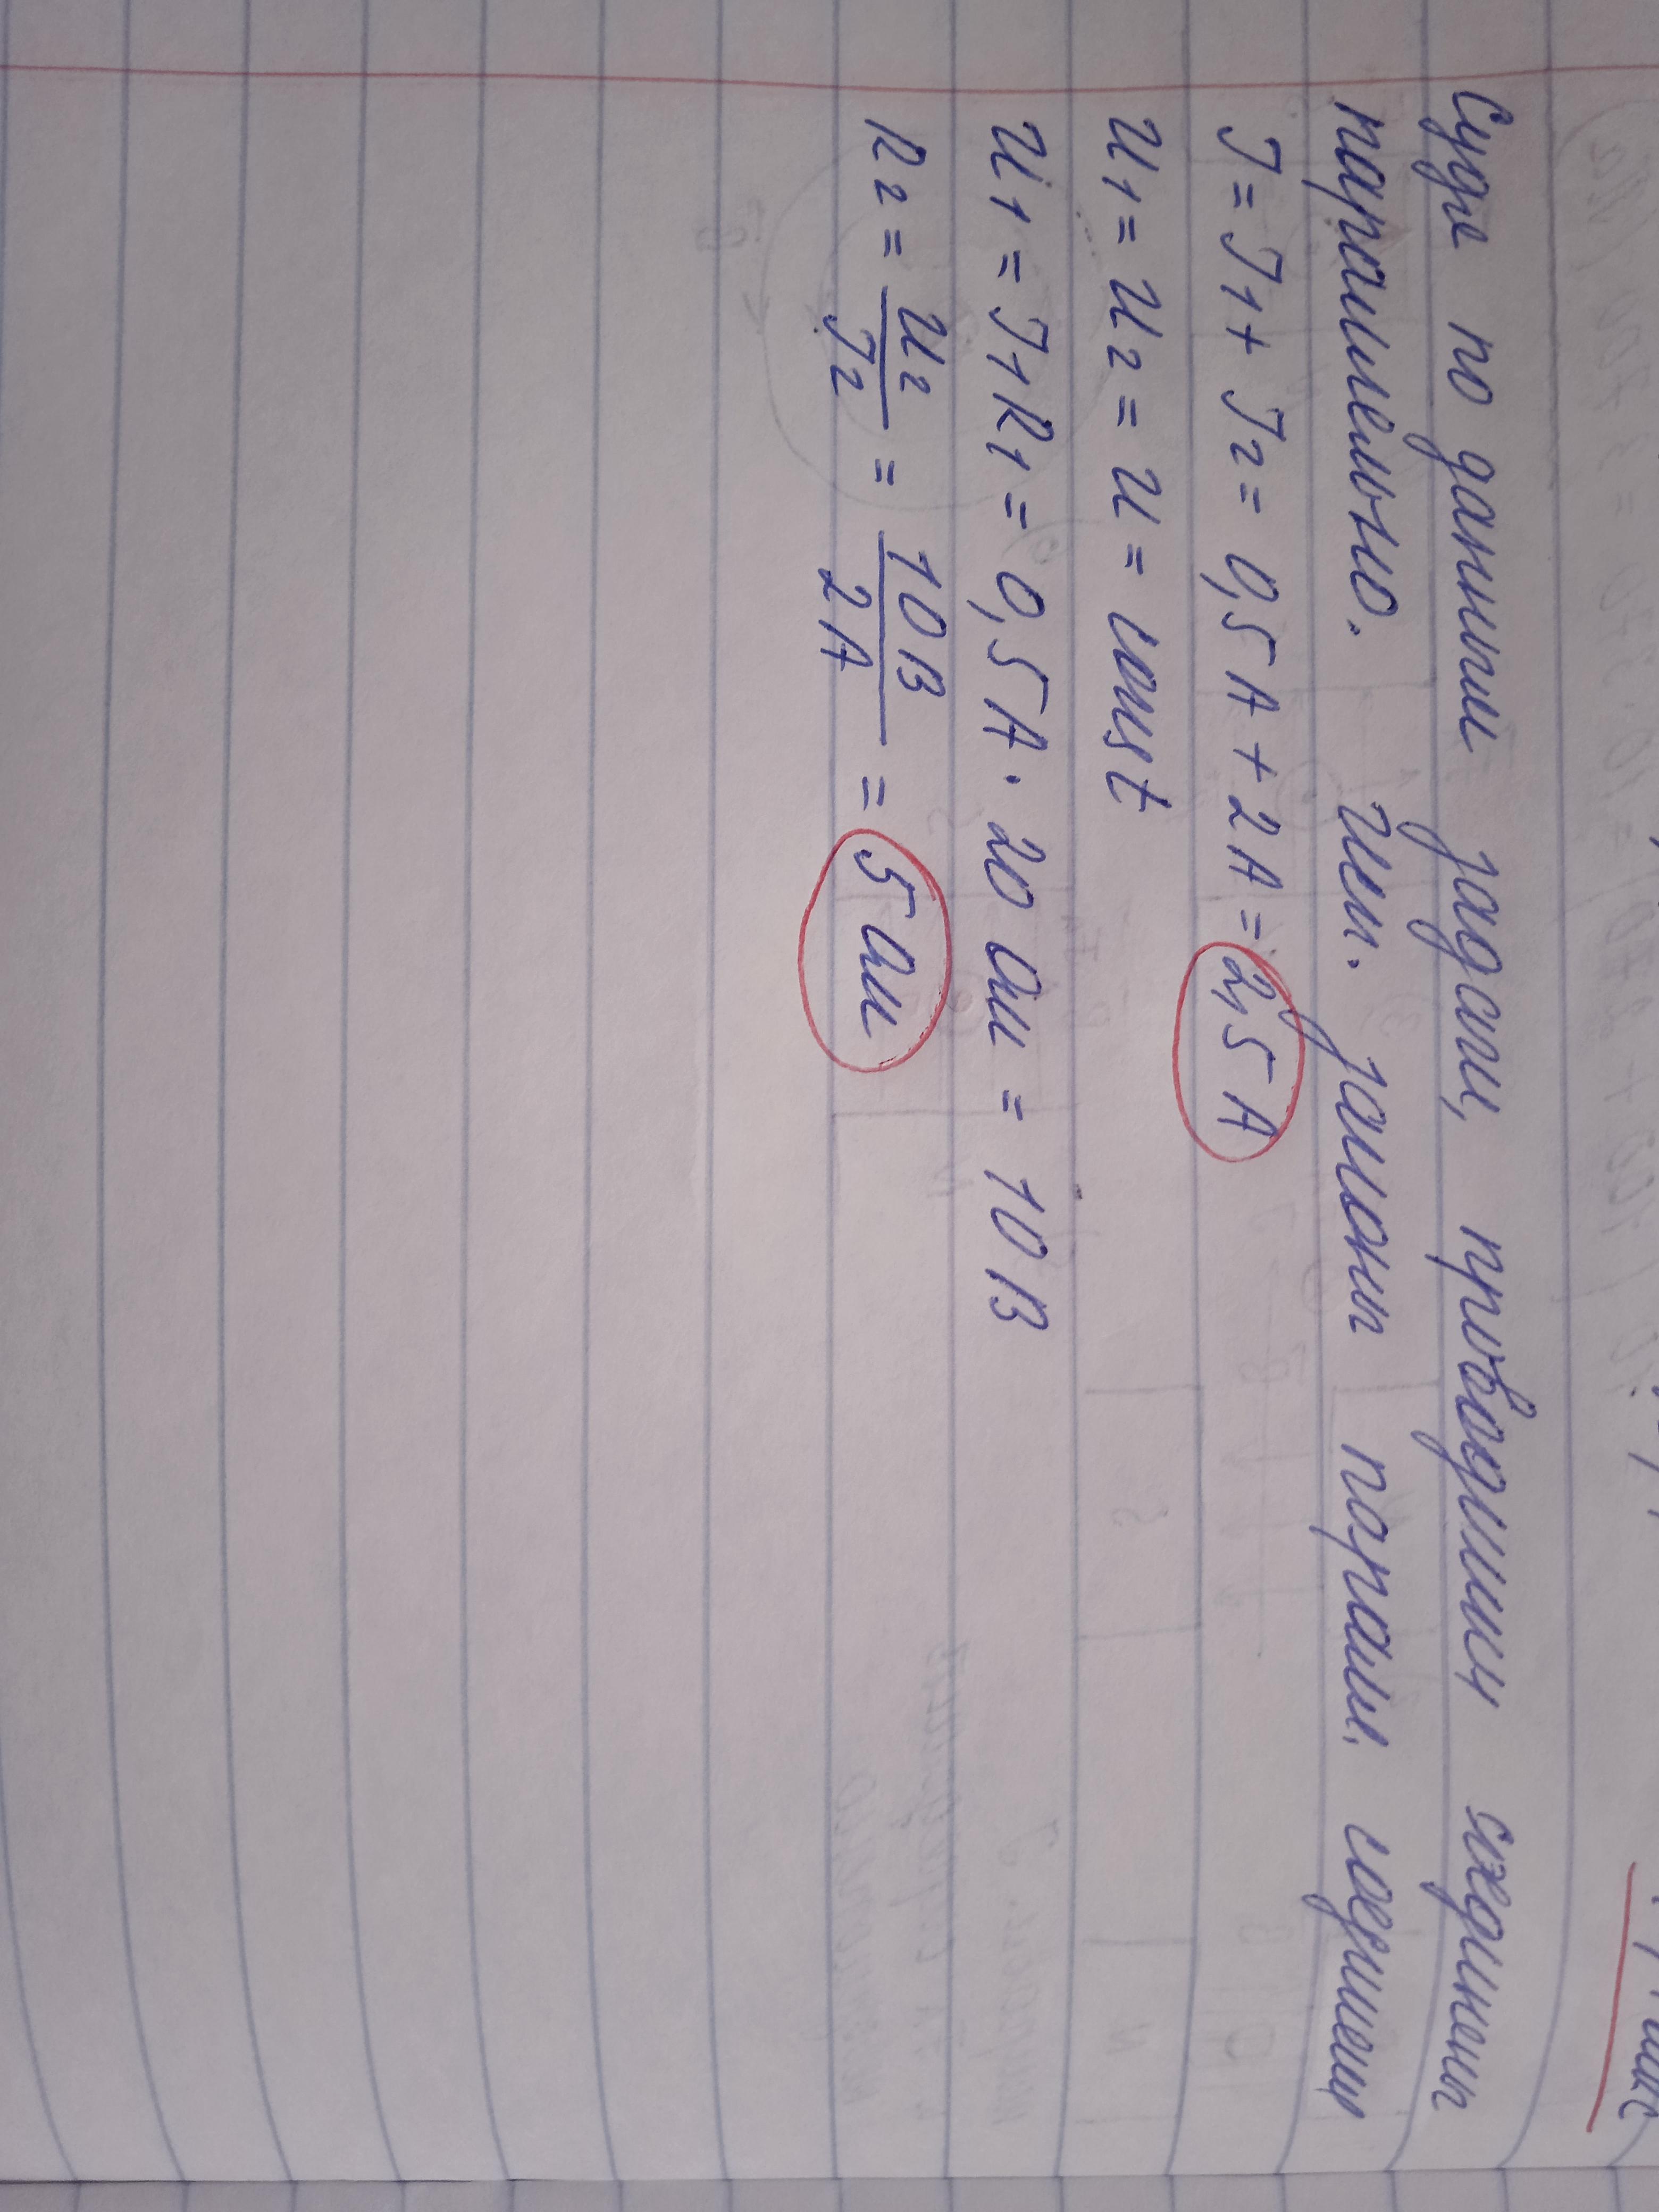 Судя по данным задачи, проводники соединены
паралельно. Исп. законы паралл. соединения
J = J1 + J2 = 0,5 А + 2 А = 2,5 А
U1 = U2 = U = const
U1 = J1R1 = 0,5 А · 20 Ом = 10 В
R2 = U2/J2 = 10В/2А = 5 Ом